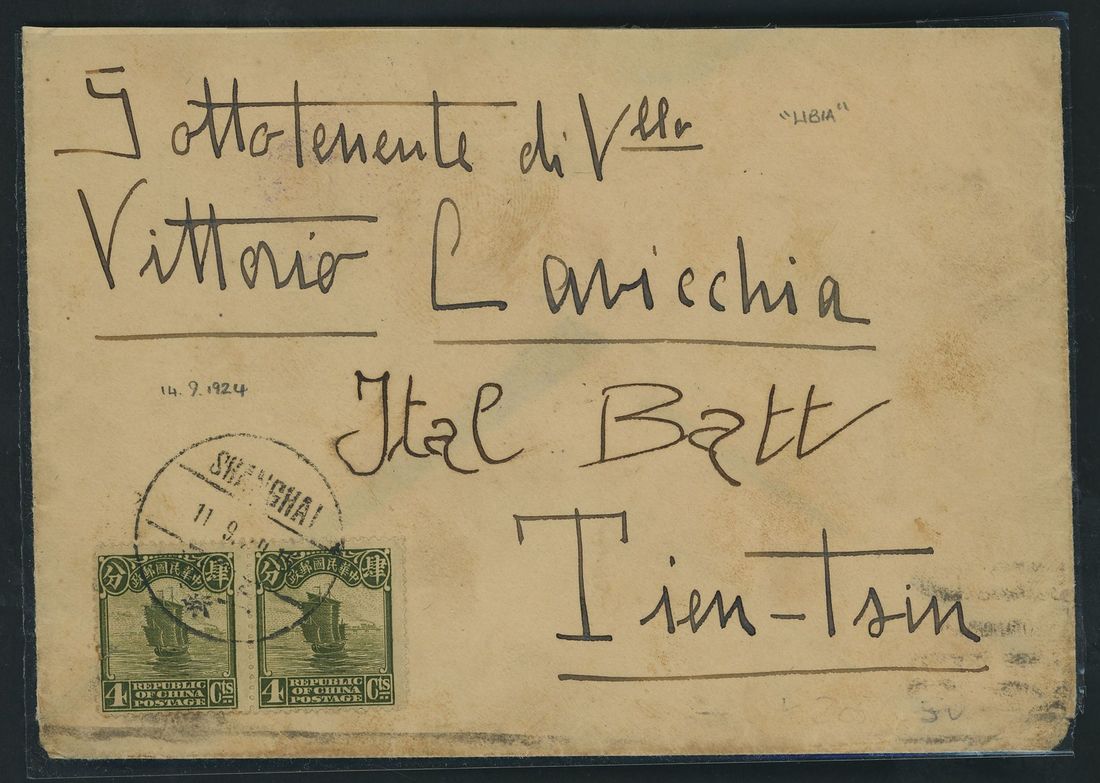 Sottotenente di Vllo
"LIBIA"
Vittorio Cavicchia
14.9.1924
Ital Batt
SHANGHAI
11 9.
Tien-Tsin
分 政郵國民華中 肆
分 政郵國民華中 肆
4 REPUBLIC OF CHINA POSTAGE Cts
4 REPUBLIC OF CHINA POSTAGE Cts